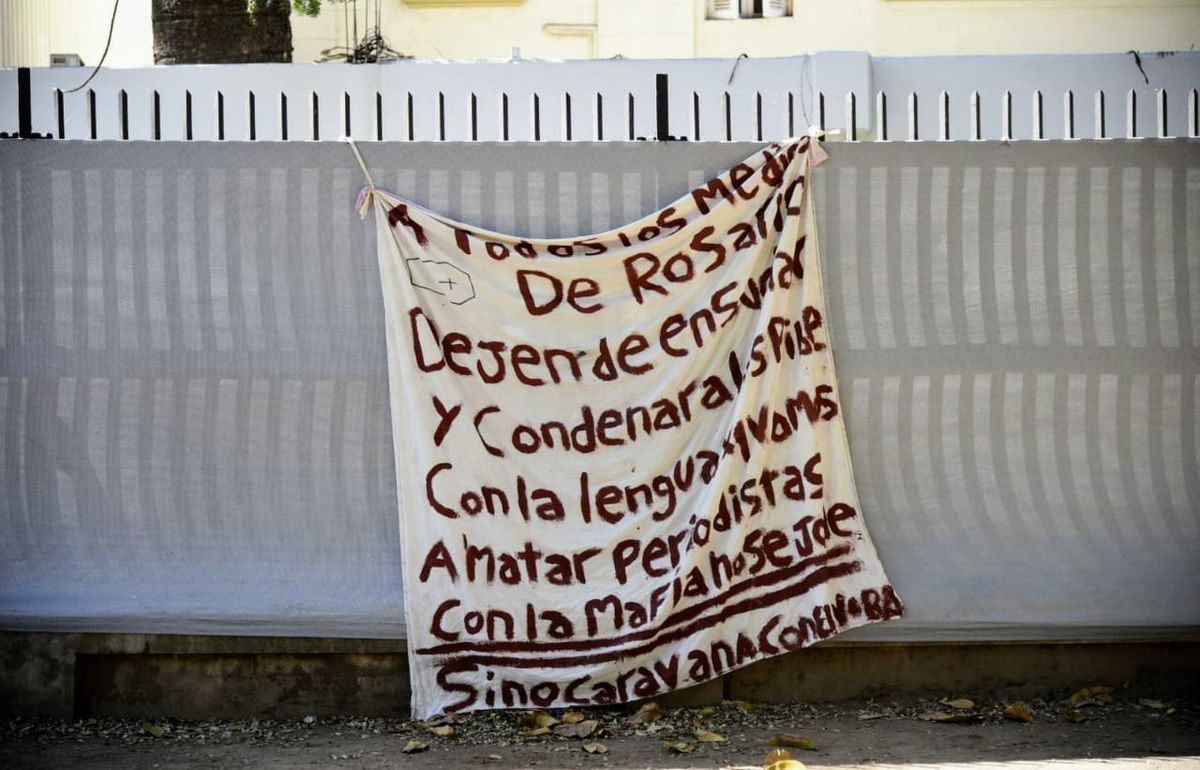 A Todos los Medios
De Rosario
Dejen de ensuciar
Y Condenar a los Pibe
Con la lengua xq vamos
A Matar periodistas
Con la Mafia no se jode
Sino caravana Con